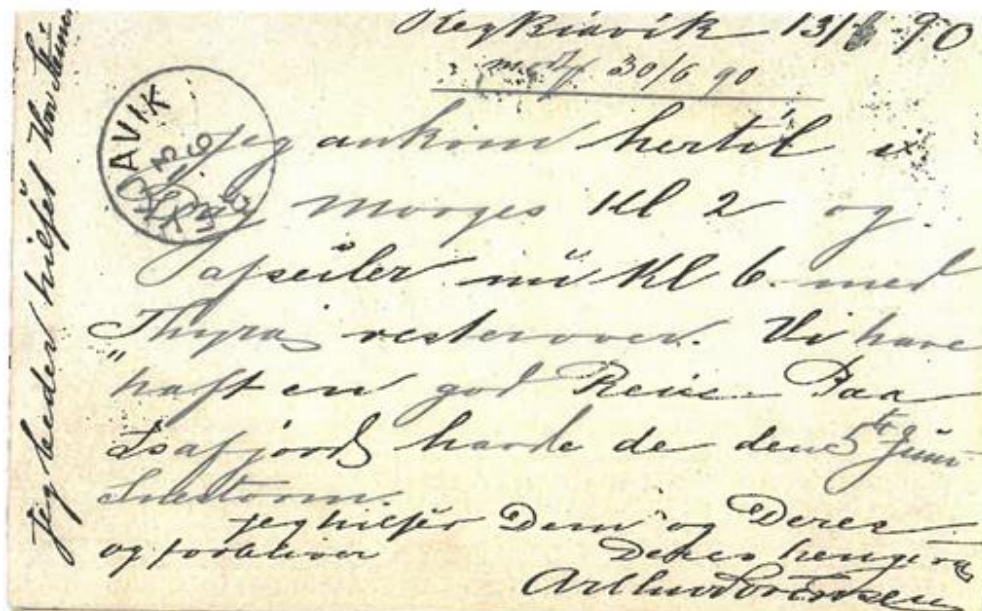 Reykiavik 13/6 90
modt 30/6 90
Jeg ankom hertil
Morges Kl 2 og
afseiler nu Kl 6 med
"Thyra" vesterover. Vi have
haft en god Reise. Paa
Isafjord havde de den 5te Juni
Snestorm.
jeg hilser Dem og Deres
og forbliver
Deres hengivne
Arthur
Jeg beder hilse